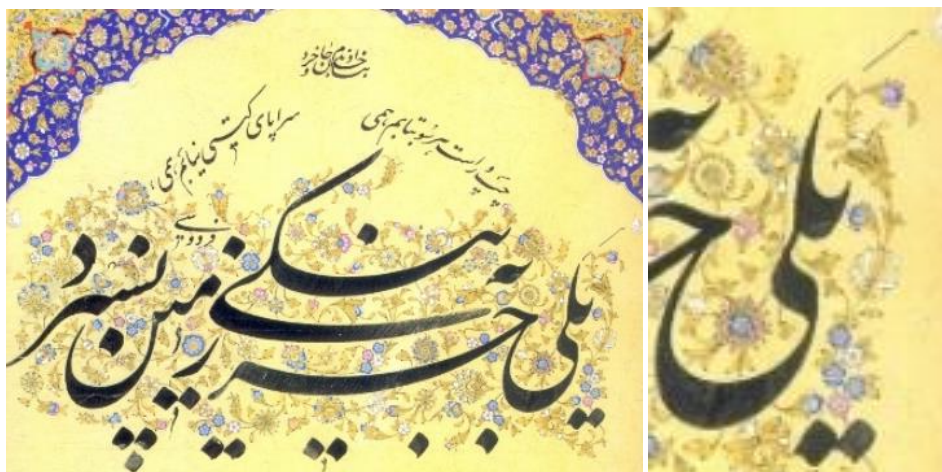 بنام خداوند جان و خرد
چپ و راست هر سو بتابم همی
سراپای گیتی نیابم همی
یکی جز به نیکی زمین نسپرد
فردوسی
یکی